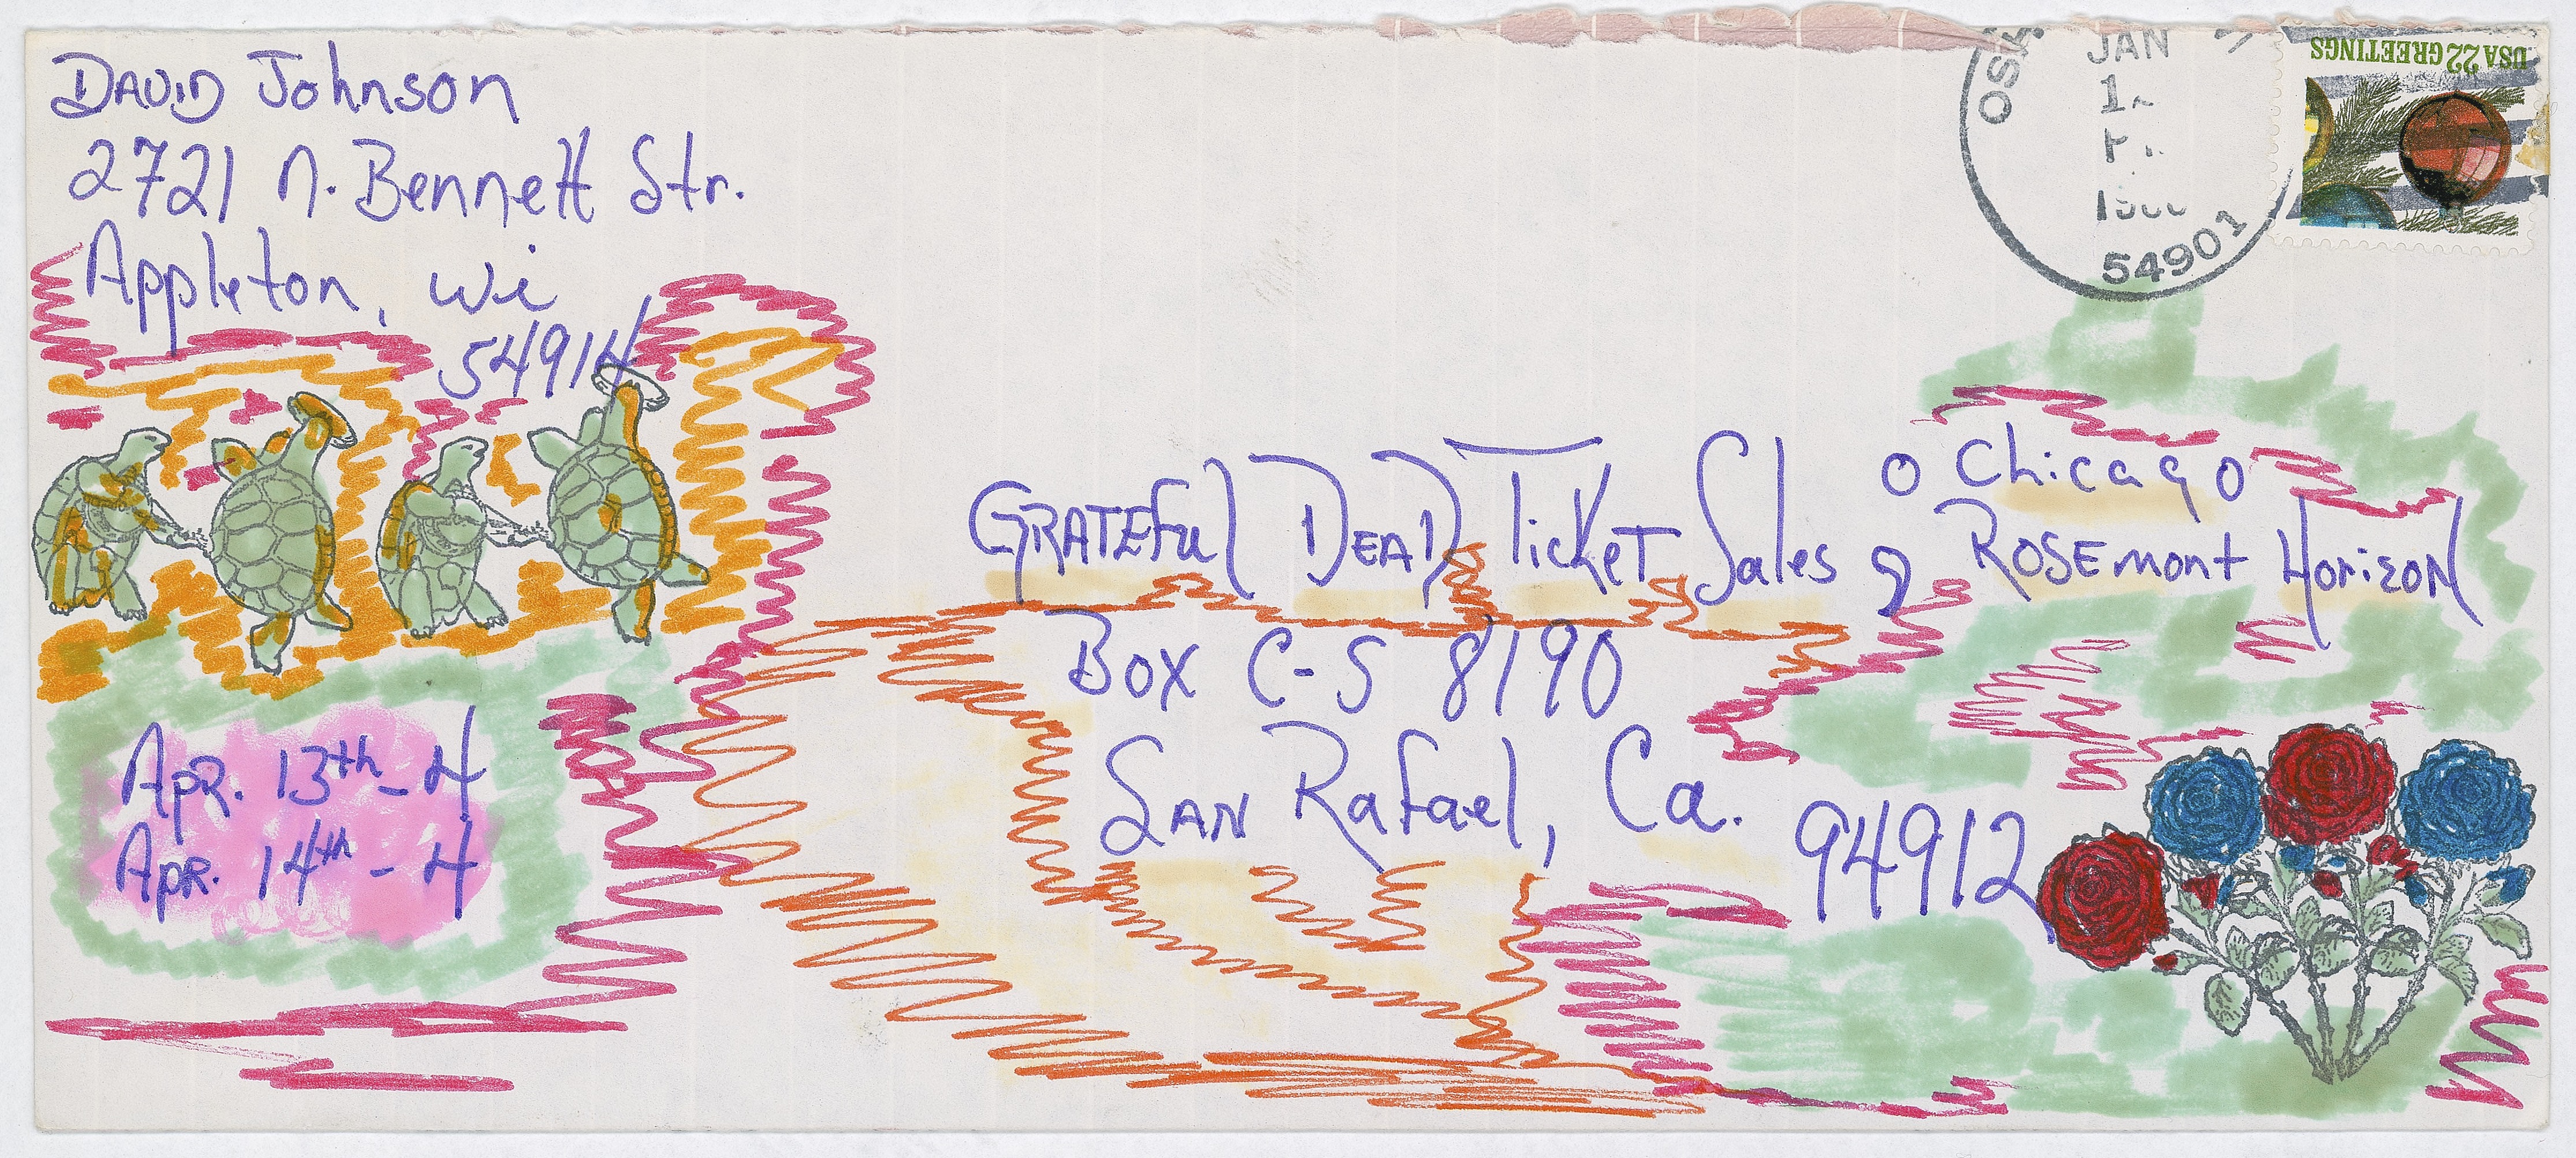 David Johnson
2721 N. Bennett Str.
Appleton, Wi
54914
JAN
54901
USA 22 GREETINGS
Grateful Dead Ticket Sales
Box C-S 8190
San Rafael, Ca.
94912
Chicago
Rosemont Horizon
Apr. 13th - 4
Apr. 14th - 4